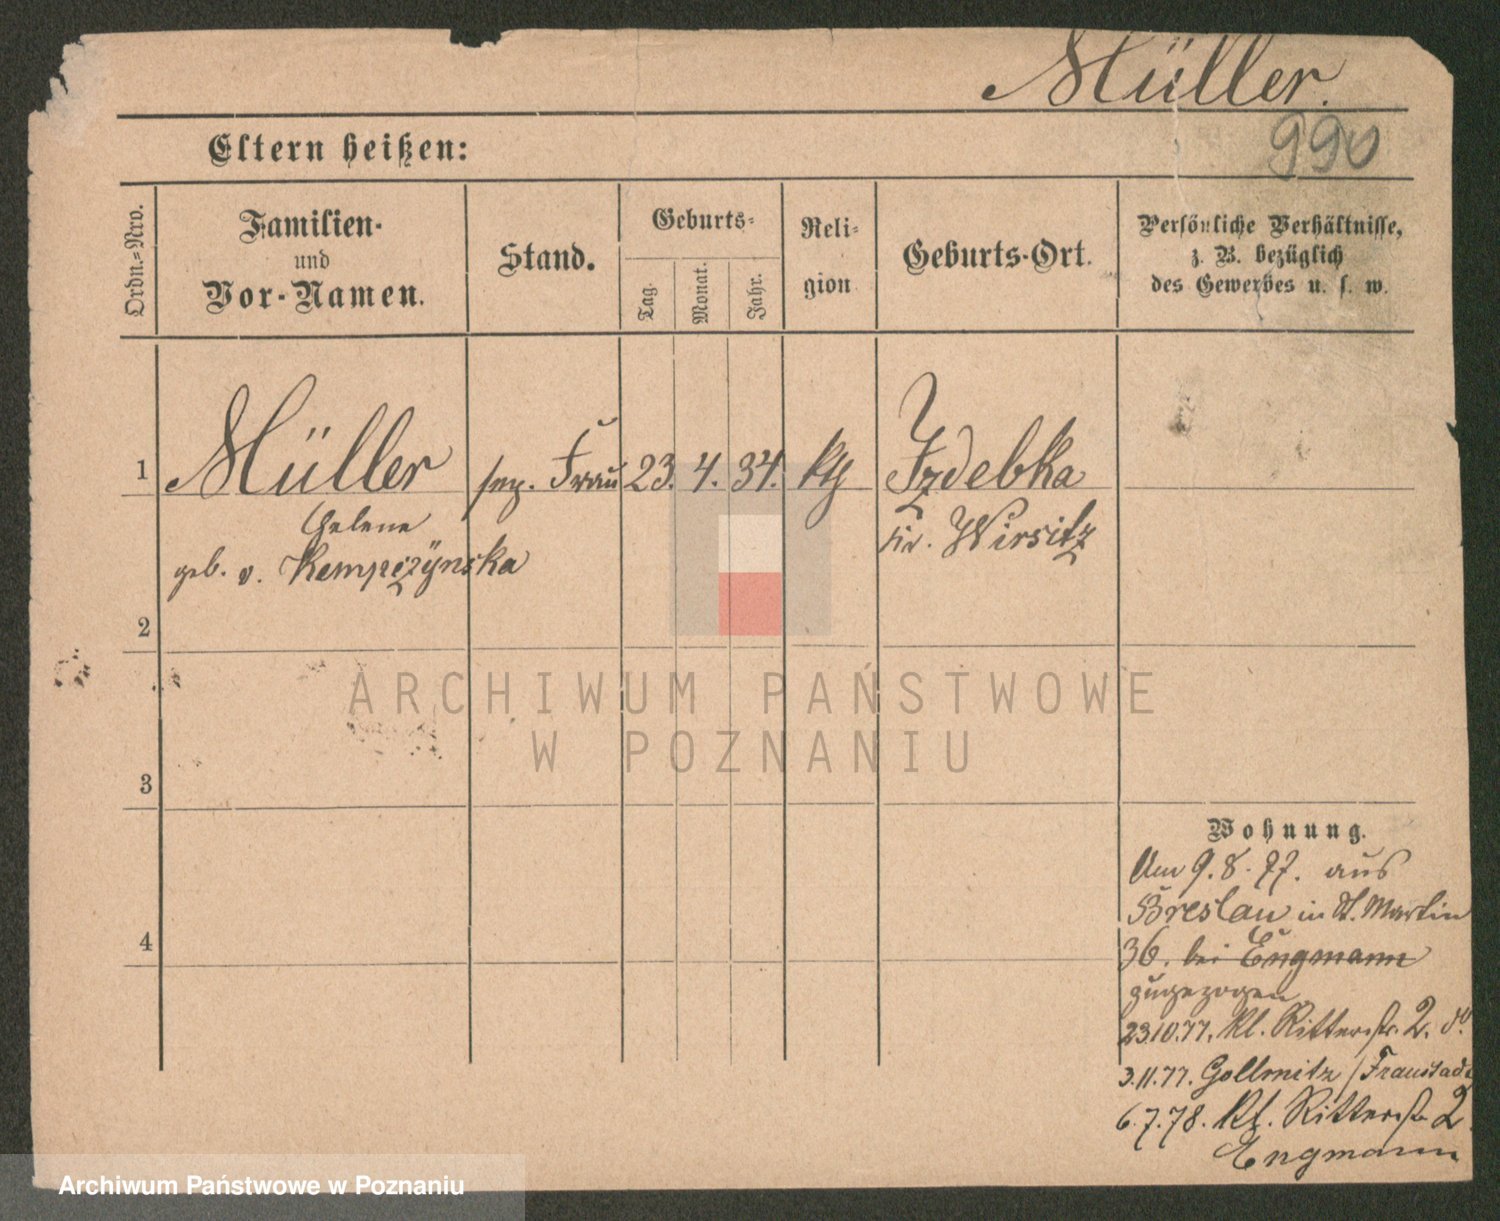 Müller.
990
Eltern heißen:
Ordn.=Nro.
Familien-
und
Vor-Namen.
Stand.
Geburts-
Tag.
Monat.
Jahr.
Reli-
gion
Geburts-Ort.
Persönliche Verhältnisse,
z. B. bezüglich
des Gewerbes u. s. w.
1
Müller
sep. Frau
23. 4. 34.
kth
Izdebka
Helene
kr. Wirsitz
geb. v. Kempczÿnska
2
ARCHIWUM PAŃSTWOWE
W POZNANIU
3
Wohnung.
Am 9. 8. 77. aus
Breslau in St. Martin
4
36. bei Engmann
zugezogen
23.10.77. Kl. Ritterstr. 2. do
3.11.77. Gollmitz / Fraustadt
6.7.78. Kl. Ritterstr 2
Engmann
Archiwum Państwowe w Poznaniu